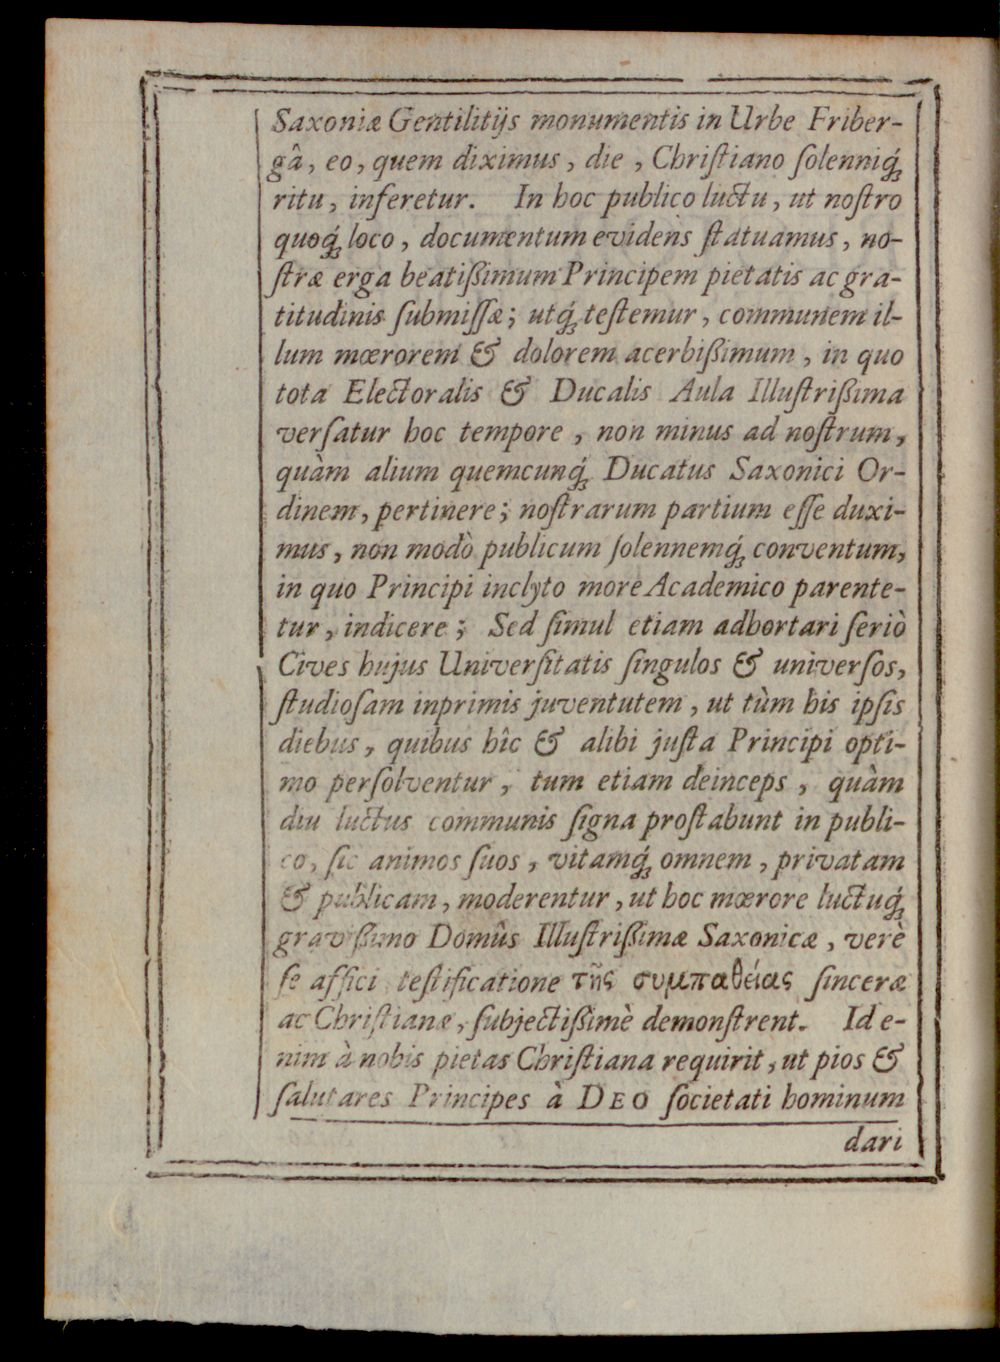 Saxoniæ Gentilitijs monumentis in Urbe Friber-
gâ, eo, quem diximus, die, Chriſtiano ſolenniq́;
ritu, inferetur. In hoc publico luctu, ut noſtro
quoq́; loco, documentum evidens ſtatuamus, no-
ſtræ erga beatißimum Principem pietatis ac gra-
titudinis ſubmiſſæ; utq́; teſtemur, communem il-
lum mœrorem & dolorem acerbißimum, in quo
tota Electoralis & Ducalis Aula Illuſtrißima
verſatur hoc tempore, non minus ad noſtrum,
quàm alium quemcunq́; Ducatus Saxonici Or-
dinem, pertinere; noſtrarum partium eſſe duxi-
mus, non modò publicum ſolennemq́; conventum,
in quo Principi inclyto more Academico parente-
tur, indicere; Sed ſimul etiam adhortari ſeriò
Cives hujus Univerſitatis ſingulos & univerſos,
ſtudioſam inprimis juventutem, ut tùm his ipſis
diebus, quibus hîc & alibi juſta Principi opti-
mo perſolventur, tum etiam deinceps, quàm
diu luctus communis ſigna proſtabunt in publi-
co, ſic animos ſuos, vitamq́; omnem, privatam
& publicam, moderentur, ut hoc mœrore luctuq́;
gravißimo Domûs Illuſtrißimæ Saxonicæ, verè
ſe affici teſtificatione τῆς συμπαθείας ſinceræ
ac Chriſtianæ, ſubjectißimè demonſtrent. Id e-
nim à nobis pietas Chriſtiana requirit, ut pios &
ſalutares Principes à DEO ſocietati hominum
dari